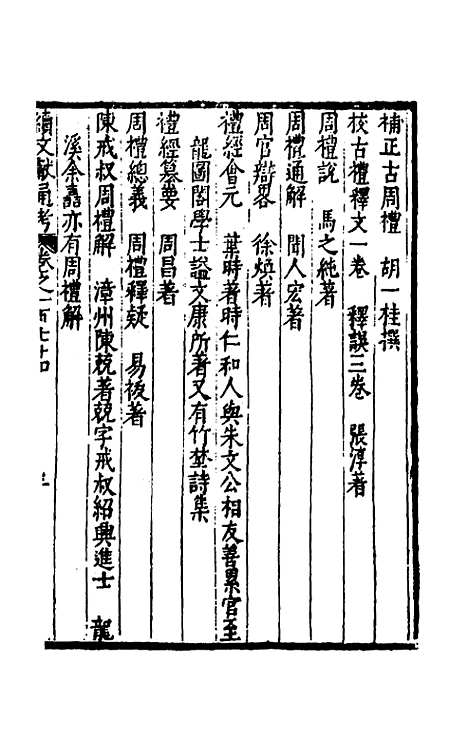 補正古周禮　胡一桂撰
校古禮釋文一卷　釋誤三卷　張淳著
周禮說　馬之純著
周禮通解　聞人宏著
周官辯畧　徐煥著
禮經會元　葉時著時仁和人與朱文公相友善累官至
龍圖閣學士諡文康所著又有竹埜詩集
禮經纂要　周昌著
周禮總義　周禮釋疑　易祓著
陳戒叔周禮解　漳州陳兢著兢字戒叔紹興進士　龍
溪余嚞亦有周禮解
續文獻通考　卷之一百七十四　三